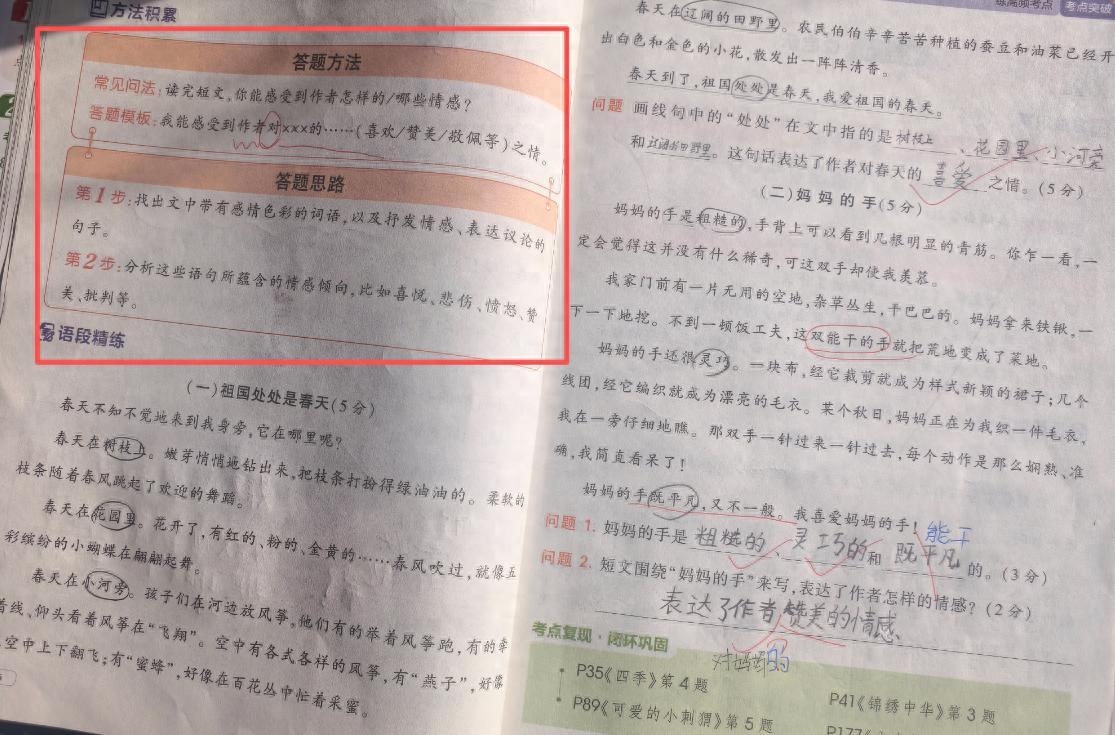 方法积累
答题方法
常见问法:读完短文,你能感受到作者怎样的/哪些情感?
答题模板:我能感受到作者对×××的……(喜欢/赞美/敬佩等)之情。
答题思路
第1步:找出文中带有感情色彩的词语,以及抒发情感、表达议论的
句子。
第2步:分析这些语句所蕴含的情感倾向,比如喜悦、悲伤、愤怒、赞
美、批判等。
语段精练
(一)祖国处处是春天(5分)
春天不知不觉地来到我身旁,它在哪里呢?
春天在树枝上。嫩芽悄悄地钻出来,把枝条打扮得绿油油的。柔软的
枝条随着春风跳起了欢迎的舞蹈。
春天在花园里。花开了,有红的、粉的、金黄的……春风吹过,就像五
彩缤纷的小蝴蝶在翩翩起舞。
春天在小河旁。孩子们在河边放风筝,他们有的举着风筝跑,有的牵
着线、仰头看着风筝在“飞翔”。空中有各式各样的风筝,有“燕子”,好像
空中上下翻飞;有“蜜蜂”,好像在百花丛中忙着采蜜。
练高频考点 考点突破
春天在辽阔的田野里。农民伯伯辛辛苦苦种植的蚕豆和油菜已经开
出白色和金色的小花,散发出一阵阵清香。
春天到了,祖国处处是春天,我爱祖国的春天。
问题 画线句中的“处处”在文中指的是树枝上、花园里、小河旁
和辽阔的田野里。这句话表达了作者对春天的喜爱之情。(5分)
(二)妈妈的手(5分)
妈妈的手是粗糙的,手背上可以看到几根明显的青筋。你乍一看,一
定会觉得这并没有什么稀奇,可这双手却使我羡慕。
我家门前有一片无用的空地,杂草丛生,干巴巴的。妈妈拿来铁锹,一
下一下地挖。不到一顿饭工夫,这双能干的手就把荒地变成了菜地。
妈妈的手还很灵巧。一块布,经它裁剪就成为样式新颖的裙子;几个
线团,经它编织就成为漂亮的毛衣。某个秋日,妈妈正在为我织一件毛衣,
我在一旁仔细地瞧。那双手一针过来一针过去,每个动作是那么娴熟、准
确,我简直看呆了!
妈妈的手既平凡,又不一般。我喜爱妈妈的手!
能干
问题 1. 妈妈的手是粗糙的、灵巧的和既平凡的。(3分)
问题 2. 短文围绕“妈妈的手”来写,表达了作者怎样的情感?(2分)
表达了作者赞美的情感、
对妈妈的
考点复现·闭环巩固
P35《四季》第4题
P41《锦绣中华》第3题
P89《可爱的小刺猬》第5题